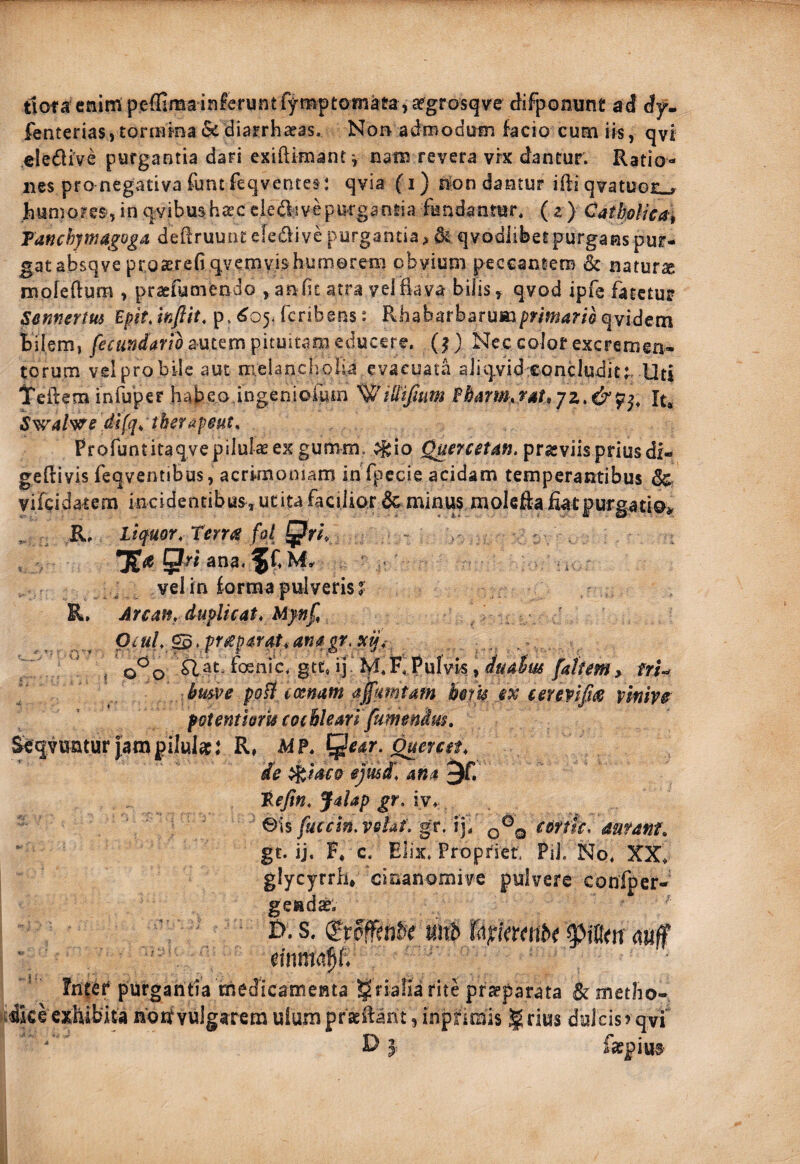 tiora enim pessima inferunt symptomata, ægrosqve disponunt ad dy-
senterias, tormina & diarrhæas. Non admodum facio cum iis, qvi
electivè purgantia dari existimant; nam revera vix dantur. Ratio-
nes pro negativa sunt seqventes: qvia (1) non dantur isti qvatuor
humores, in qvibus hæc electivè purgantia fundantur. (2) Catholica,
Panchymagoga destruunt electivè purgantia, & qvodlibet purgans pur-
gat absqve proæresi qvemvis humorem obvium peccantem & naturæ
molestum, præsumendo, an sit atra vel flava bilis, qvod ipse fatetur
Sennertus Epit. instit. p. 605. scribens: Rhabarbarum primariò qvidem
bilem, secundariò autem pituitam educere. (3) Nec color excremen-
torum vel pro bile aut melancholia evacuatâ aliqvid concludit; Uti
Testem insuper habeo ingeniosum Willisium Pharm. rat. 72. & 73. It.
Swalwe disq. therapeut.
Profunt itaqve pilulæ ex gumm. ⁜io Quercetan. præviis prius di-
gestivis seqventibus, acrimoniam in specie acidam temperantibus &
viscidatem incidentibus, ut ita facilior & minus molesta fiat purgatio.
R. Liquor. Terræ fol ri.
ri ana. M.
vel in forma pulveris:
R. Arcan. duplicat. Myns.
Ocul. ♋. præparat. ana gr. xij.
at. fœnic. gtt. ij. M. F. Pulvis, duabus saltem, tri-
busve post cœnam assumtam horis ex cerevisiæ vinive
potentioris cochleari sumendus.
Seqvuntur jam pilulæ: R. MP. ear. Quercet.
de ⁜iaco ejusd. ana
Resin. Jalap gr. iv.
is succin. volat. gr. ij. cortic. aurant.
gt. ij. F. c. Elix. Propriet. Pil. No. XX.
glycyrrh. cinanomive pulvere consper-
gendæ.
D. S. Eröffnende und laxierende Pillen auff
einmahl.
Inter purgantia medicamenta rialia ritè præparata & metho-
dicè exhibita non vulgarem usum præstant, inprimis rius dulcis, qvi
D 3 sæpius